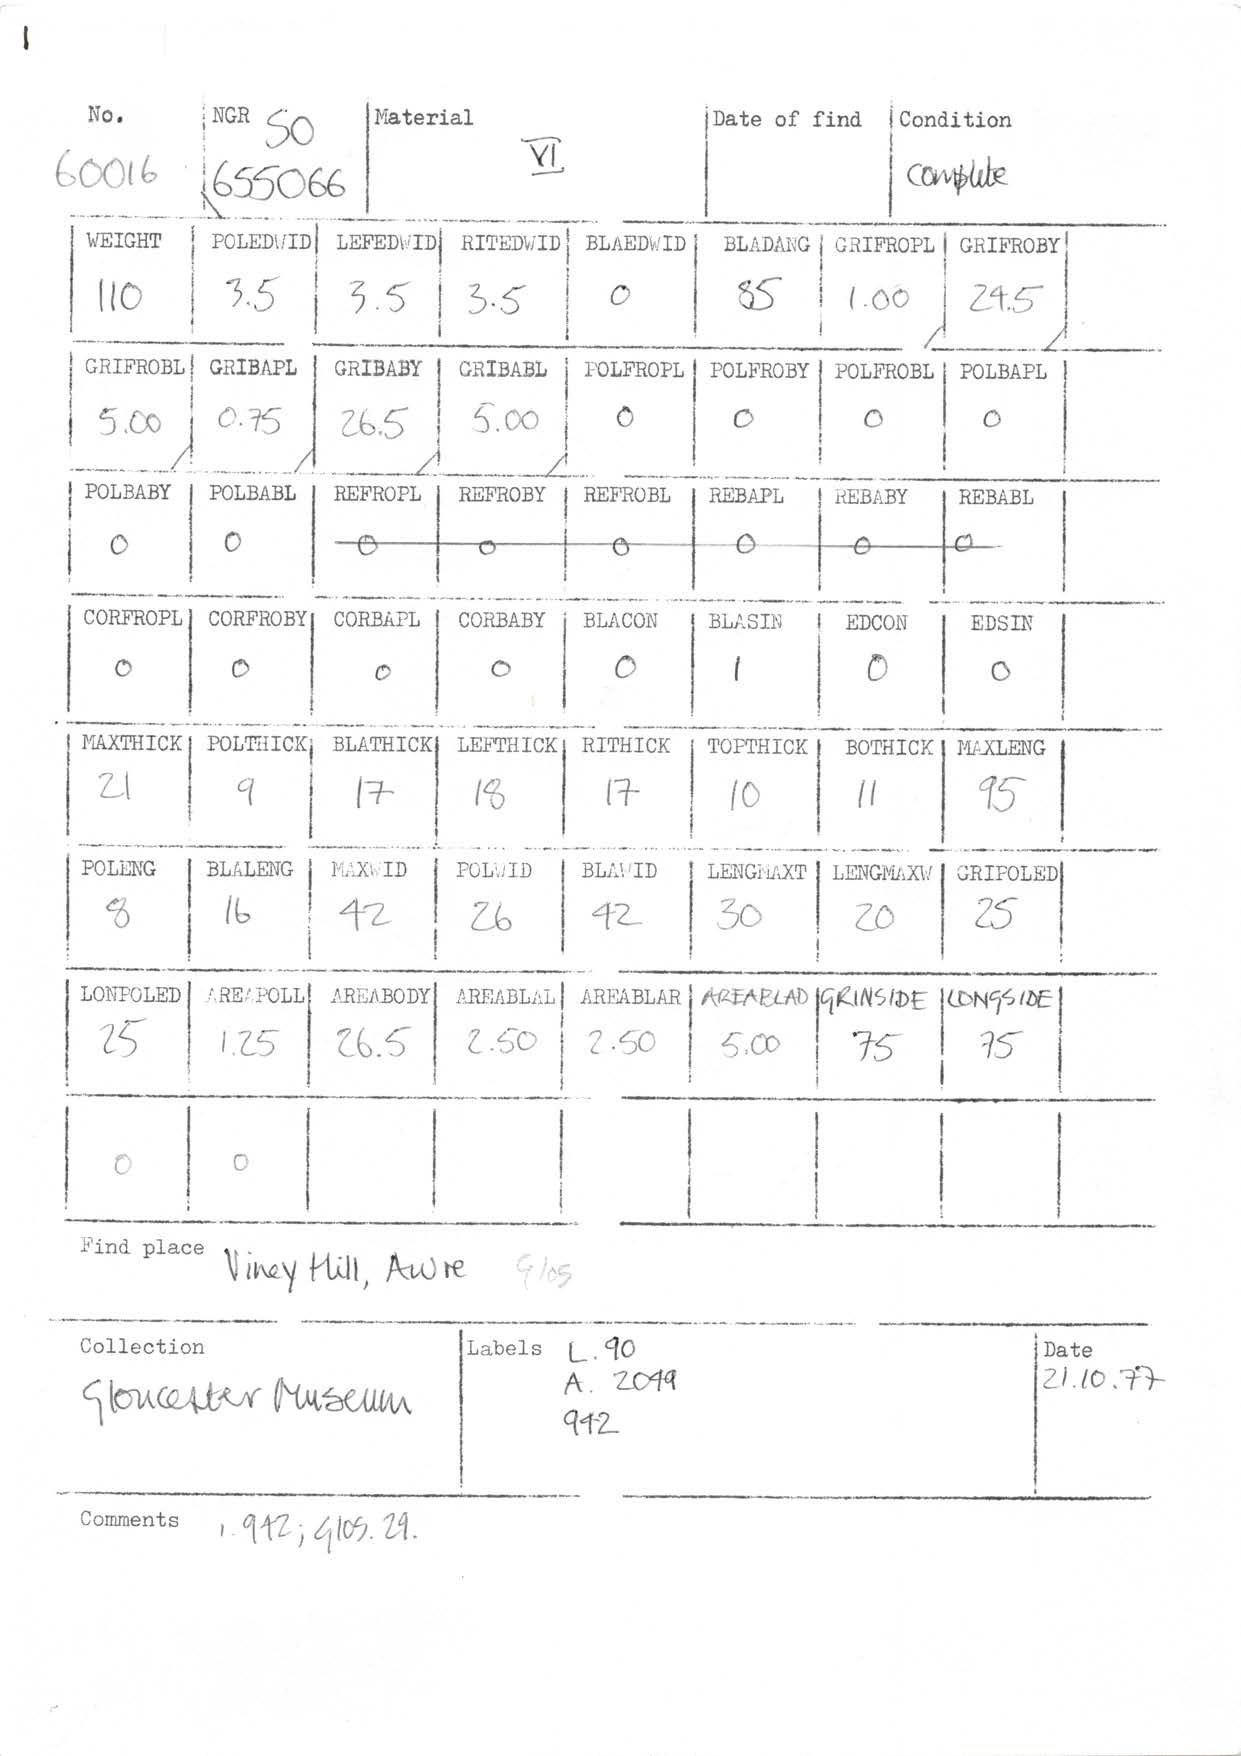 1
No. NGR SO Material Date of find Condition
60016 655066 VI complete
WEIGHT POLEDWID LEFEDWID RITEDWID BLAEDWID BLADANG GRIFROPL GRIFROBY
110 3.5 3.5 3.5 0 85 1.00 24.5
GRIFROBL GRIBAPL GRIBABY GRIBABL POLFROPL POLFROBY POLFROBL POLBAPL
5.00 0.75 26.5 5.00 0 0 0 0
POLBABY POLBABL REFROPL REFROBY REFROBL REBAPL REBABY REBABL
0 0 0 0 0 0 0 0
CORFROPL CORFROBY CORBAPL CORBABY BLACON BLASIN EDCON EDSIN
0 0 0 0 0 1 0 0
MAXTHICK POLTHICK BLATHICK LEFTHICK RITHICK TOPTHICK BOTHICK MAXLENG
21 9 17 18 17 10 11 95
POLENG BLALENG MAXWID POLWID BLAWID LENGMAXT LENGMAXW GRIPOLED
8 16 42 26 42 30 20 25
LONPOLED AREAPOLL AREABODY AREABLAL AREABLAR AREABLAD GRINSIDE LONGSIDE
25 1.25 26.5 2.50 2.50 5.00 75 75
0 0
Find place Viney Hill, Awre Glos
Collection Labels L.90 Date
Gloucester Museum A. 2049 21.10.77
942
Comments 1. 942; Glos. 29.